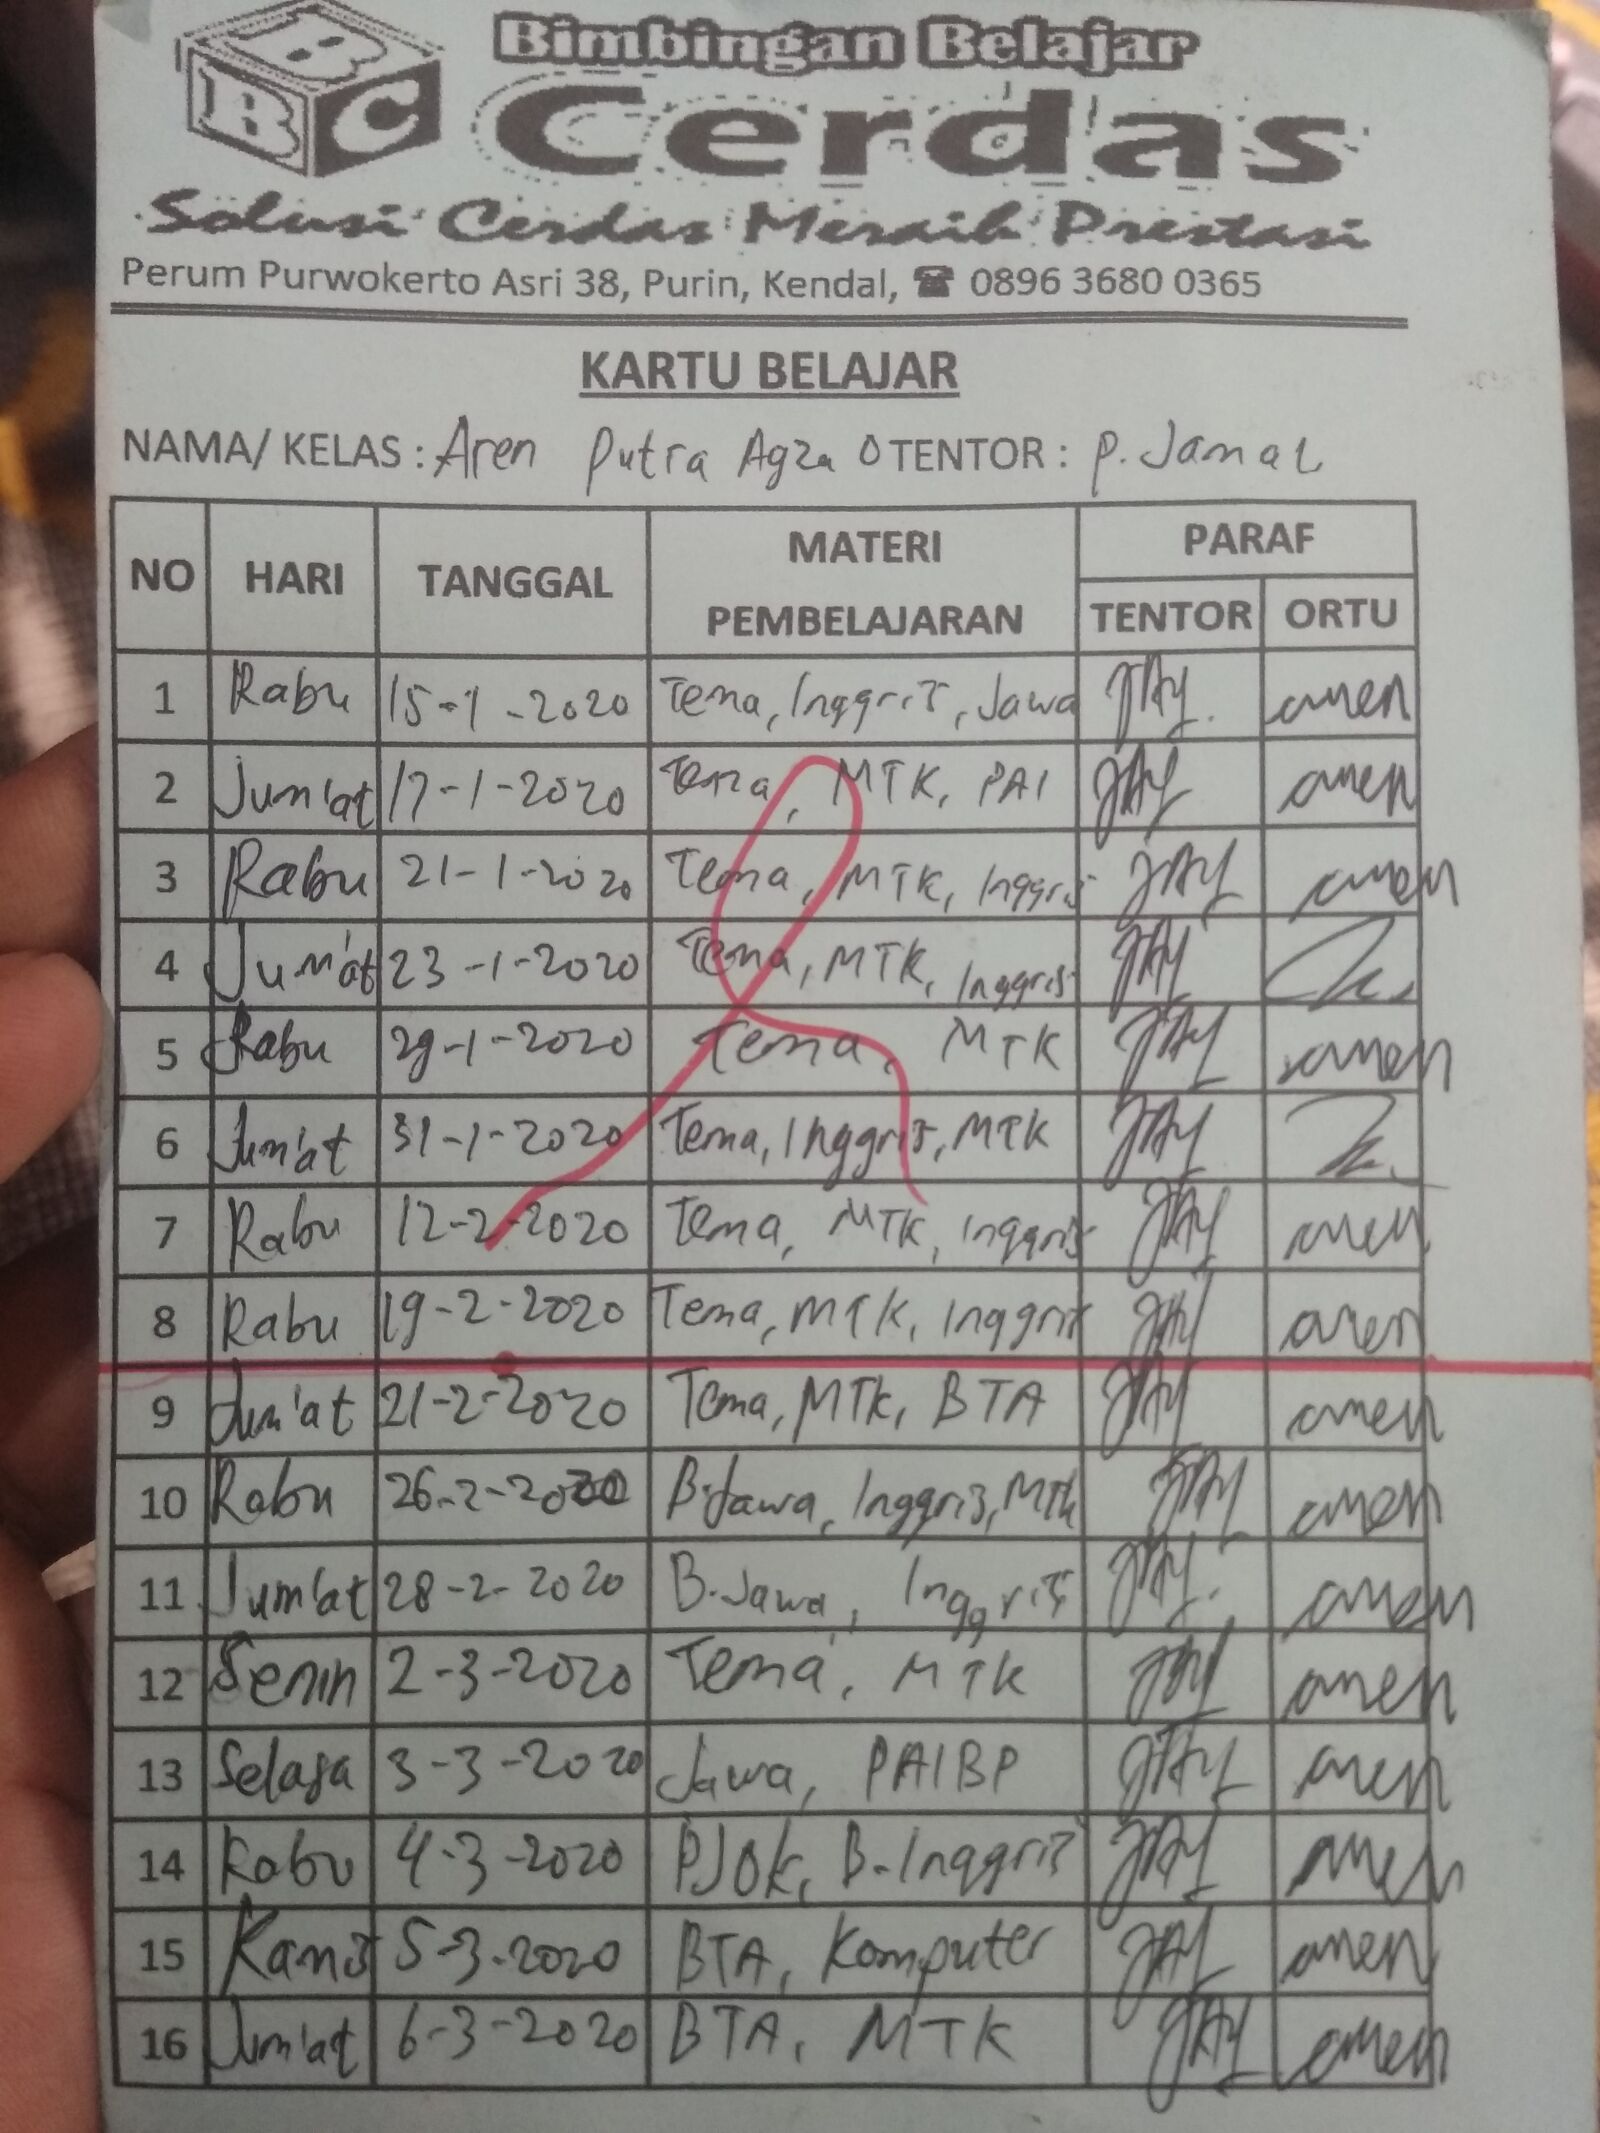 BBC
Bimbingan Belajar
Cerdas
Solusi Cerdas Meraih Prestasi
Perum Purwokerto Asri 38, Purin, Kendal, ☎ 0896 3680 0365
KARTU BELAJAR
NAMA/ KELAS : Aren Putra Agza O TENTOR : P. Jamal
NO HARI TANGGAL MATERI PEMBELAJARAN PARAF
TENTOR ORTU
1 Rabu 15-1-2020 Tema, Inggris, Jawa aren
2 Jum'at 17-1-2020 Tema, MTK, PAI aren
3 Rabu 21-1-2020 Tema, MTK, Inggris aren
4 Jum'at 23-1-2020 Tema, MTK, Inggris
5 Rabu 29-1-2020 Tema, MTK aren
6 Jum'at 31-1-2020 Tema, Inggris, MTK
7 Rabu 12-2-2020 Tema, MTK, Inggris aren
8 Rabu 19-2-2020 Tema, MTK, Inggris aren
9 Jum'at 21-2-2020 Tema, MTK, BTA aren
10 Rabu 26-2-2020 B.Jawa, Inggris, MTK aren
11 Jum'at 28-2-2020 B.Jawa, Inggris aren
12 Senin 2-3-2020 Tema, MTK aren
13 Selasa 3-3-2020 Jawa, PAIBP aren
14 Rabu 4-3-2020 PJOK, B.Inggris aren
15 Kamis 5-3-2020 BTA, Komputer aren
16 Jum'at 6-3-2020 BTA, MTK aren